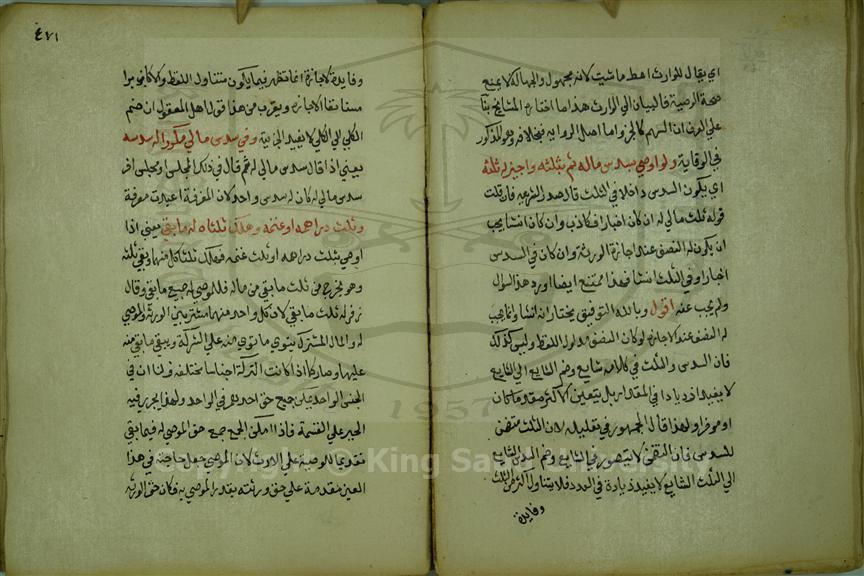 اي يقال للوارث اعط ما شيت لانه مجهول والجهالة لا يمنع
صحة الوصية فالبيان الي الوارث هذا ما اختاره المشايخ بناء
علي العرف ان السهم كالجزو اما اصل الرواية بخلافه وهو كمذكور
في الوقاية ولو اوصي بسدس ماله ثم بثلثه واجيز له ثلثه
اي يكون السدس داخلا في الثلث قال صدر الشريعة فان قلت
قوله ثلث مالي له ان كان اخبارا فكاذب وان كان انشا يجب
ان يكون له النصف عند اجازة الورثة وان كان في السدس
اخبارا وفي الثلث انشا فهذا ممتنع ايضا اورد هذا السوال
ولم يجب عنه اقول وبالله التوفيق يختار انه انشا وانما يجب
له النصف عند الاجازه لو كان النصف مدلول اللفظ وليس كذلك
فان السدس والثلث في كلامه شايع وضم الشايع الي الشايع
لا يفيد ازديادا في المقدار بل يتعين الاكثر مقدما كان
او موخرا ولهذا قال الجمهور في تعليله لان الثلث متضمن
للسدس فان التضمن لا يتصور في الشايع وضم السدس الشايع
الي الثلث الشايع لا يفيد زيادة في العدد فلا يتناول اكثر من الثلث
وفايدة
٤٧١
وفايدة الاجازة انما تظهر فيما يكون متناول اللفظ والا كان برا
مستانفا لا اجازه ويقرب من هذا قول اهل المعقول ان ضم
الكلي الي الكلي لا يفيد الجزئية وفي سدس مالي مكررا له سدسه
يعني اذا قال سدس مالي له ثم قال في ذلك المجلس او مجلس اخر
سدس مالي له كان له سدس واحد لان المعرفة اعيدت معرفة
وثلث دراهمه او غنمه وهلك ثلثاه له ما بقي يعني اذا
اوصي بثلث دراهمه او ثلث غنمه فهلك ثلثا كل منهما وبقي ثلثه
وهو يخرج من ثلث ما بقي من ماله فللموصي له جميع ما بقي وقال
زفر له ثلث ما بقي لان كل واحد منهما مشترك بين الورثة والموصي
له والمال المشترك يتوي ما توي منه علي الشركة ويبقي ما بقي منه
عليها وصار كما اذا كانت التركة اجناسا مختلفة ولنا ان في
الجنس الواحد يمكن جمع حق احدهم في الواحد ولهذا يجري فيه
الجبر علي القسمة فاذا امكن الجمع جمع حق الموصي له فيما بقي
تقديما للوصية علي الارث لان الموصي جعل حاجته في هذا
العين مقدمة علي حق ورثته بقدر الموصي به فكان حق الورثه